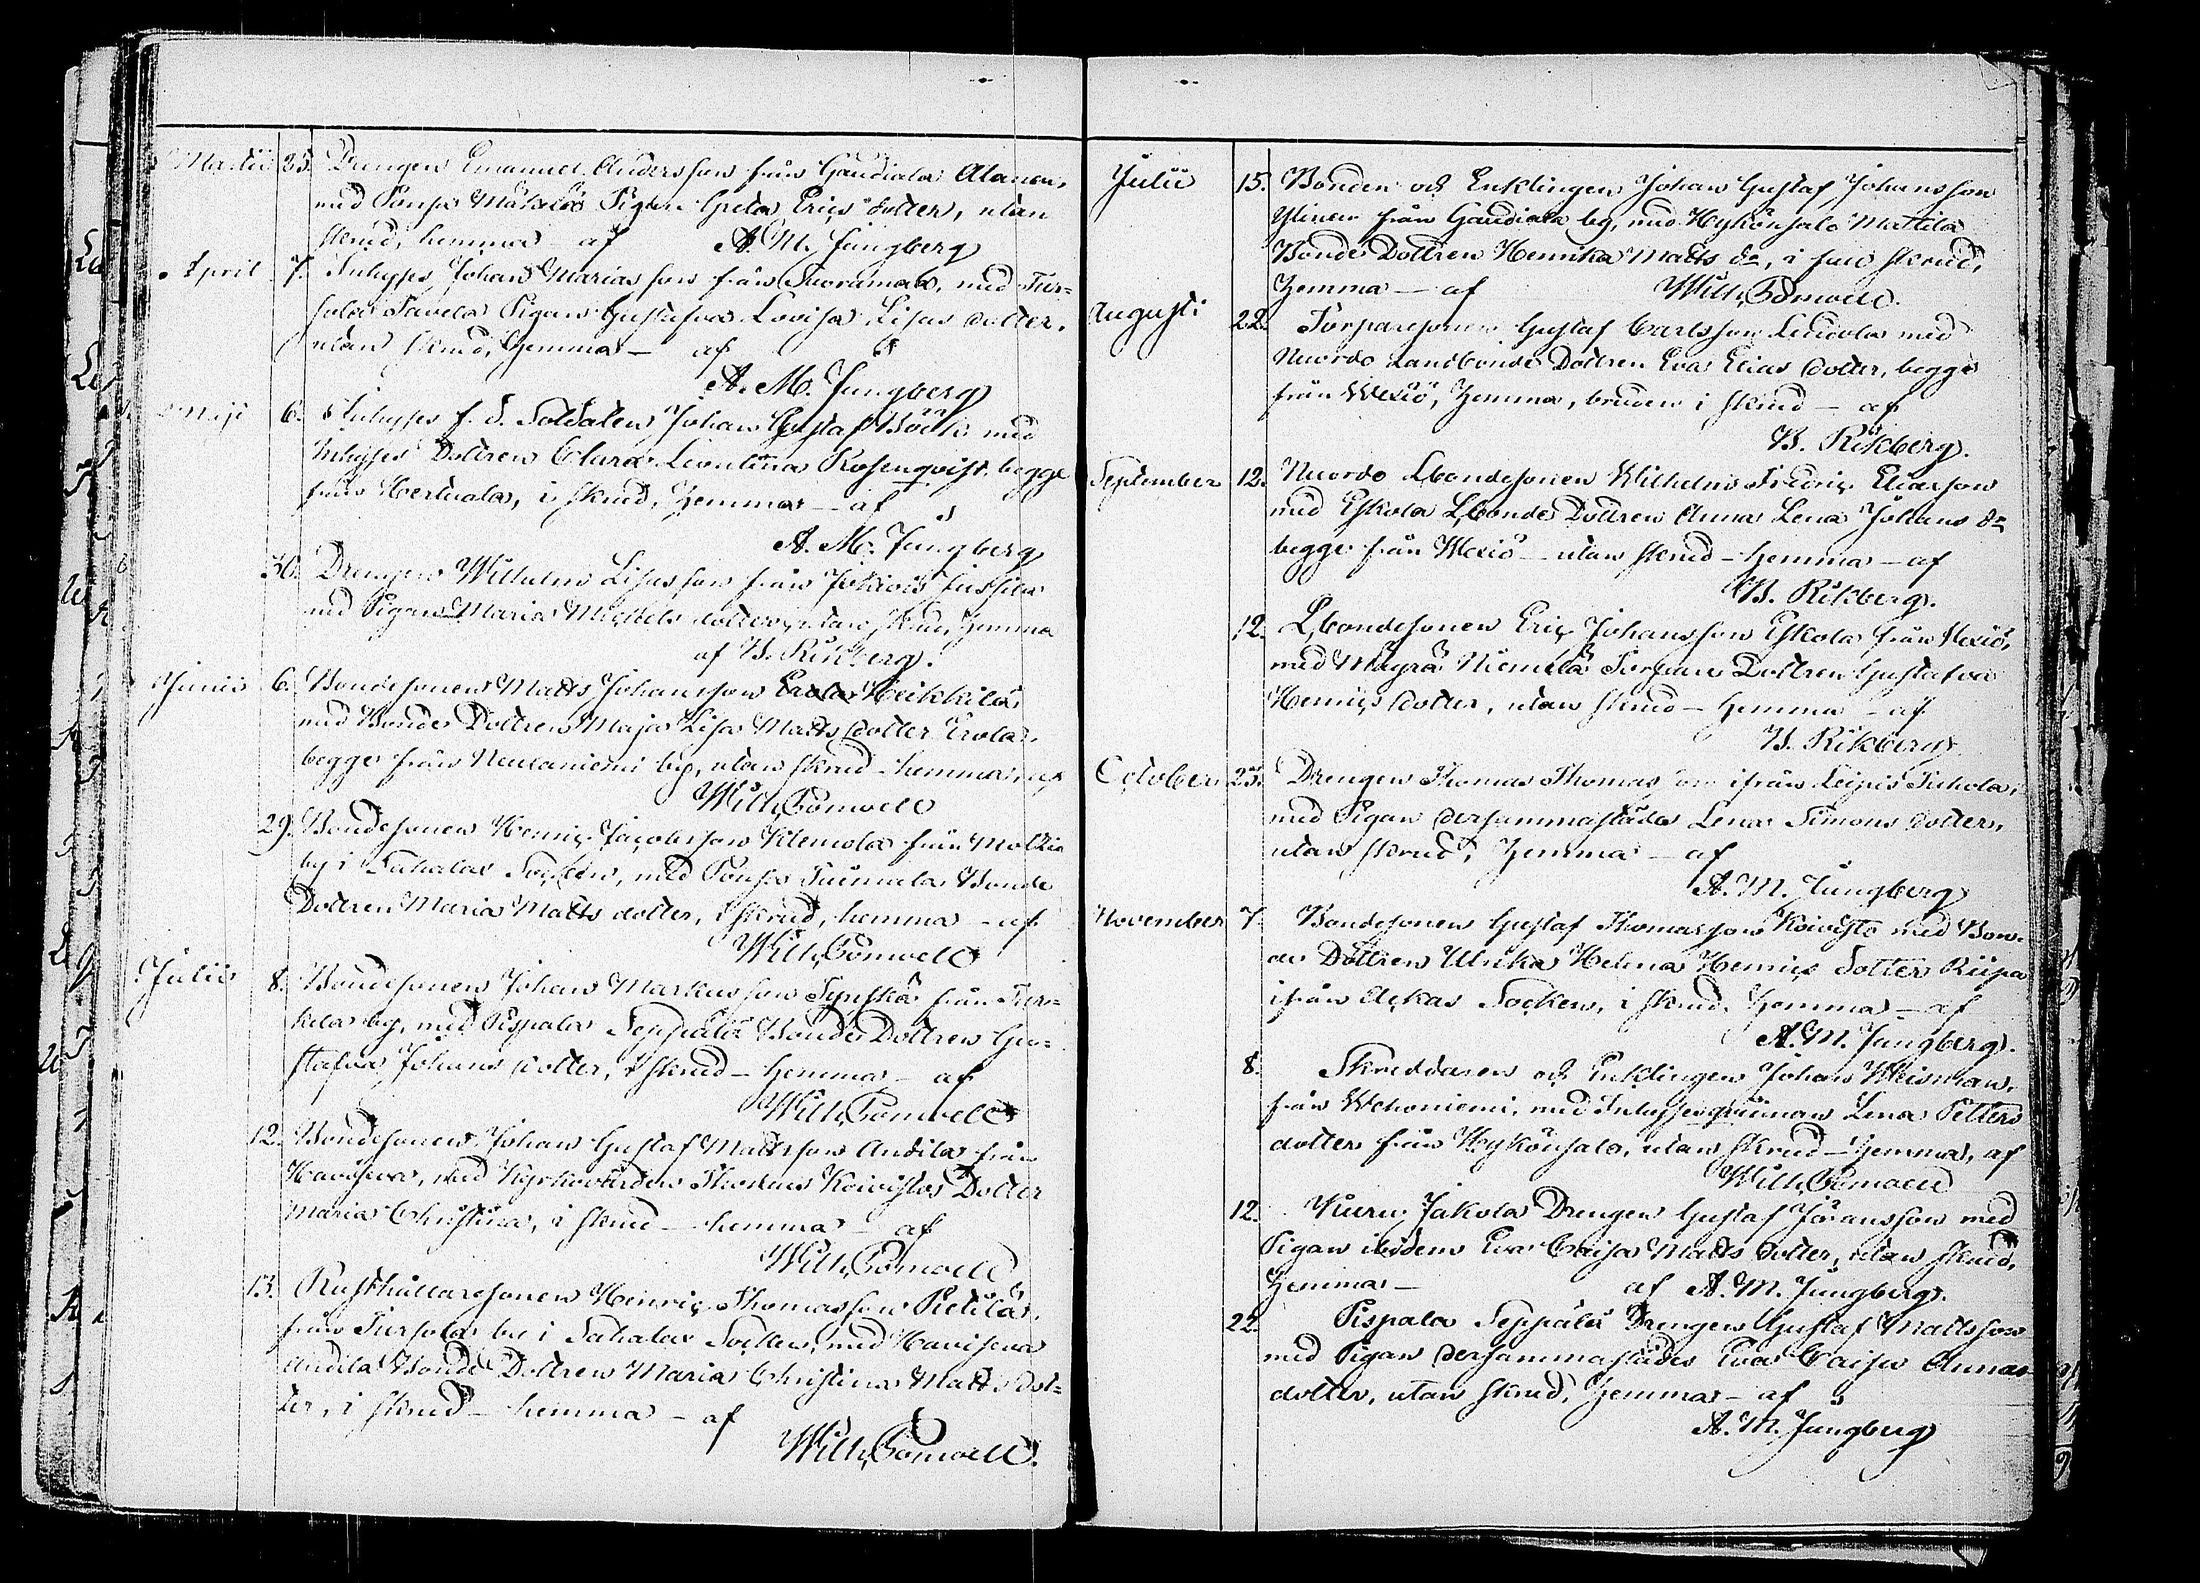 Martii 25. Drengen Emanuel Andersson från Gaudiala Alanen,
med Ponsa Mäkelä Pigan Greta Erics dotter, utan
skrud, hemma af A. M. Jungberg
April 7. Inhyses Johan Mariasson från Suoramaa, med Tur-
sola Tavela Pigan Gustafva Lovisa Lisas dotter,
utan skrud, hemma — af
A. M. Jungberg
Maji 6. Inhyses f. d. Soldaten Johan Gustaf Böök med
Inhyses Dottren Clara Leontina Rosenqvist, begge
från Hertuala, i skrud, hemma — af
A. M. Jungberg
30. Drengen Wilhelm Lisasson från Jokiois Jussila
med Pigan Maria Michels dotter, utan skrud, hemma
af B. Rikberg.
Junii 6. Bondesonen Matts Johansson Erola Heikkilä
med Bonde Dottren Maja Lisa Matts dotter Erola,
begge från Neulaniemi by, utan skrud - hemma, af
Wilh. Pomoell
29. Bondesonen Henric Jacobsson Klemola från Moltia
by i Sahalax Socken, med Ponsa Tuimala Bonde
Dottren Maria Matts dotter, i skrud, hemma - af
Wilh. Pomoell
Julii 8. Bondesonen Johan Markusson Synskä från Tur-
kila by, med Pispala Seppälä Bonde Dottren Gu-
stafva Johans dotter, i skrud - hemma - af
Wilh. Pomoell
12. Bondesonen Johan Gustaf Mattsson Andila från
Haviseva, med Kyrkovärden Thomas Koivistos Dotter
Maria Christina, i skrud - hemma - af
Wilh. Pomoell
13. Rusthållaresonen Henric Thomasson Pietilä,
från Tursola by i Sahalax Socken, med Haviseva
Andila Bonde Dottren Maria Christina Matts dot-
ter, i skrud - hemma - af
Wilh. Pomoell.
Julii 15. Bonden och Enklingen Johan Gustaf Johansson
Ylinen från Gaudiala by, med Hykönsalo Mattila
Bonde Dottren Henrika Matts dr, i full skrud,
hemma — af Wilh. Pomoell.
Augusti 22. Torparesonen Gustaf Carlsson Leudola med
Nuordo Landbonde Dottren Eva Elias dotter, begge
från Wexiö, hemma, bruden i skrud — af
B. Rikberg.
September 12. Nuordo Lbondesonen Wilhelm Fredric Eliasson
med Eskola Lbonde Dottren Anna Lena Johans dr
begge från Wexiö — utan skrud - hemma — af
B. Rikberg.
12. Lbondesonen Eric Johansson Eskola från Wexiö,
med Mäyrä Niemelä Torpare Dottren Gustafva
Henrics dotter, utan skrud - hemma - af
B. Rikberg
October 25. Drengen Thomas Thomasson ifrån Leipis Tuhola,
med Pigan dersammastädes Lena Simons dotter,
utan skrud, hemma - af
A. M. Jungberg
November 7. Bondesonen Gustaf Thomasson Koivisto med Bon-
de Dottren Ulrika Helena Henrics dotter Riipa
ifrån Ackas Socken, i skrud, hemma - af
A. M. Jungberg.
8. Skreddaren och Enklingen Johan Weisman,
från Wehoniemi, med Inhysesqvinnan Lena Petters
dotter från Hykönsalo, utan skrud - hemma, af
Wilh. Pomoell
12. Kuru Jakola Drengen Gustaf Johansson med
Pigan ibidem Eva Caisa Matts dotter, utan skrud,
hemma — af A. M. Jungberg.
22. Pispala Seppälä Drengen Gustaf Mattsson
med Pigan dersammastädes Eva Caisa Annas
dotter, utan skrud, hemma - af
A. M. Jungberg